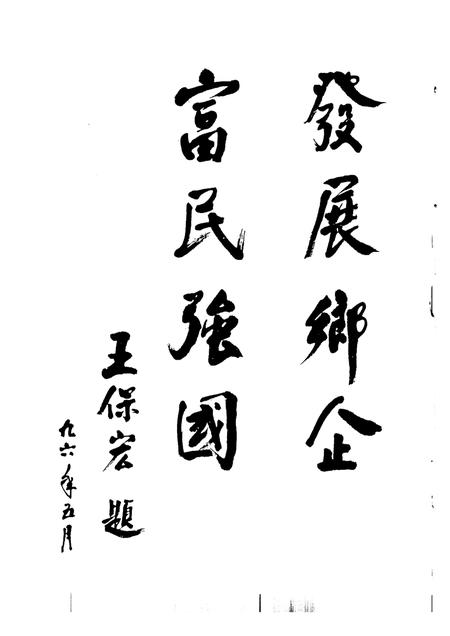 發展鄉企
富民強國
王保宏題
九六年五月